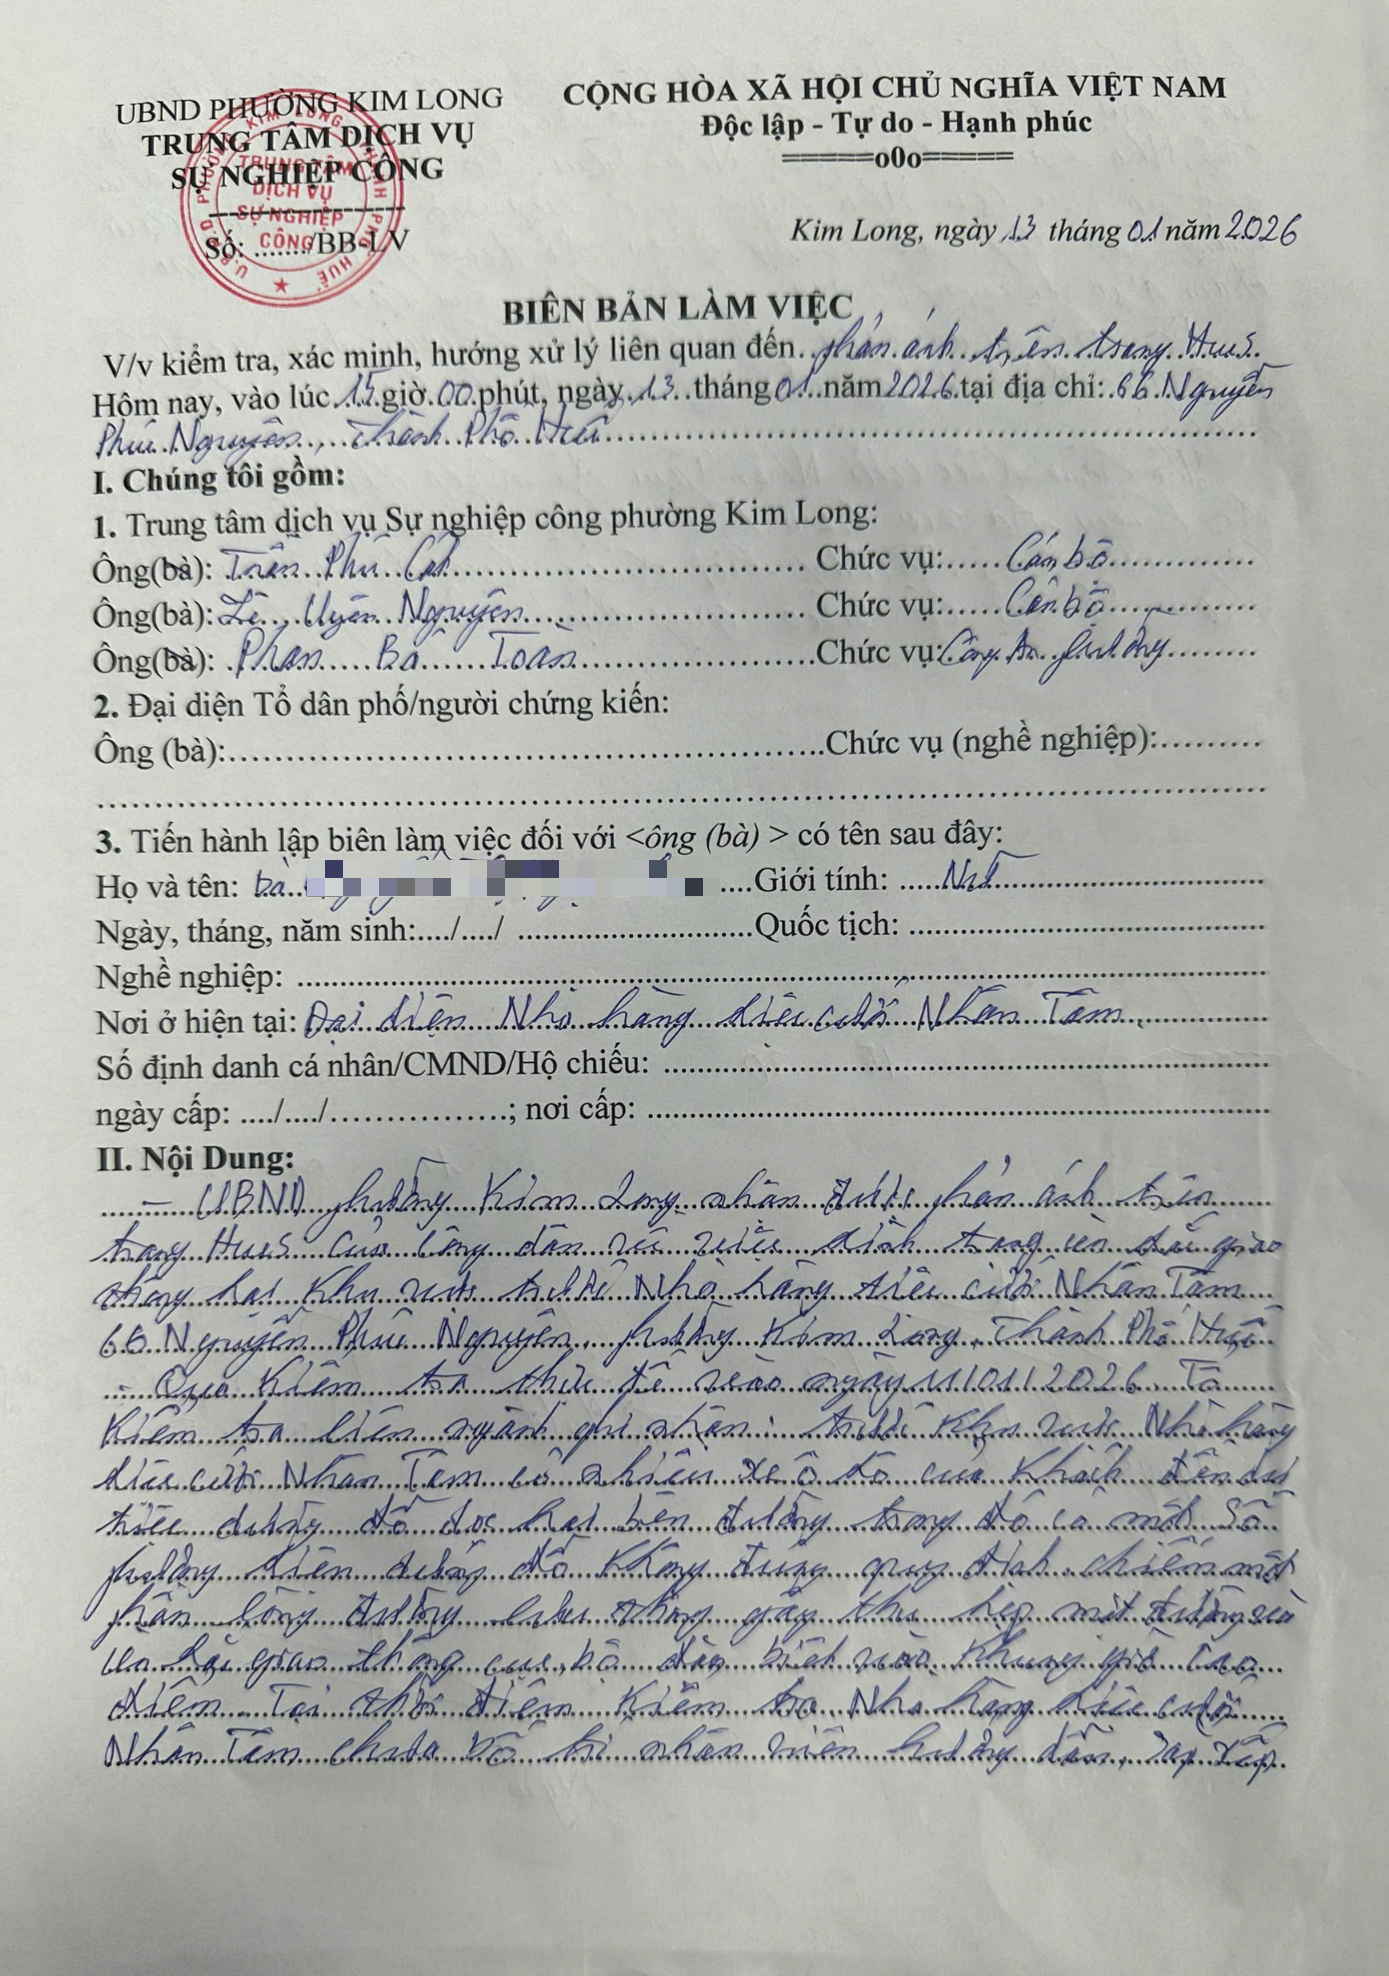 UBND PHƯỜNG KIM LONG
TRUNG TÂM DỊCH VỤ
SỰ NGHIỆP CÔNG
Số: ......./BB-LV
U.B.N.D PHƯỜNG KIM LONG THÀNH PHỐ HUẾ
TRUNG TÂM
DỊCH VỤ
SỰ NGHIỆP
CÔNG
CỘNG HÒA XÃ HỘI CHỦ NGHĨA VIỆT NAM
Độc lập - Tự do - Hạnh phúc
=====o0o=====
Kim Long, ngày 13 tháng 01 năm 2026
BIÊN BẢN LÀM VIỆC
V/v kiểm tra, xác minh, hướng xử lý liên quan đến phản ánh trên trang HueS.
Hôm nay, vào lúc 15 giờ 00 phút, ngày 13 tháng 01 năm 2026 tại địa chỉ: 66 Nguyễn
Phúc Nguyên, Thành Phố Huế
I. Chúng tôi gồm:
1. Trung tâm dịch vụ Sự nghiệp công phường Kim Long:
Ông(bà): Trần Phú Chức vụ: Cán bộ
Ông(bà): Lê Uyên Nguyên Chức vụ: Cán bộ
Ông(bà): Phan Bá Toàn Chức vụ: Công An phường
2. Đại diện Tổ dân phố/người chứng kiến:
Ông (bà): Chức vụ (nghề nghiệp):
3. Tiến hành lập biên làm việc đối với <ông (bà) > có tên sau đây:
Họ và tên: bà Giới tính: Nữ
Ngày, tháng, năm sinh:..../..../ Quốc tịch:
Nghề nghiệp:
Nơi ở hiện tại: Đại diện Nhà hàng tiệc cưới Nhân Tâm.
Số định danh cá nhân/CMND/Hộ chiếu:
ngày cấp: ..../..../................; nơi cấp:
II. Nội Dung:
- UBND phường Kim Long nhận được phản ánh trên
trang HueS của công dân về việc tình trạng ùn ứ giao
thông tại khu vực trước Nhà hàng tiệc cưới Nhân Tâm
66 Nguyễn Phúc Nguyên, phường Kim Long, Thành Phố Huế
- Qua kiểm tra thực tế vào ngày 11/01/2026 Tổ
kiểm tra liên ngành ghi nhận: trước khu vực Nhà hàng
tiệc cưới Nhân Tâm có nhiều xe ô tô của khách đến dự
tiệc dừng đỗ dọc hai bên đường trong đó có một số
phương tiện dừng đỗ không đúng quy định chiếm một
phần lòng đường lưu thông gây thu hẹp mặt đường và
ùn tắc giao thông cục bộ đặc biệt vào khung giờ cao
điểm. Tại thời điểm kiểm tra Nhà hàng tiệc cưới
Nhân Tâm chưa bố trí nhân viên hướng dẫn, sắp xếp